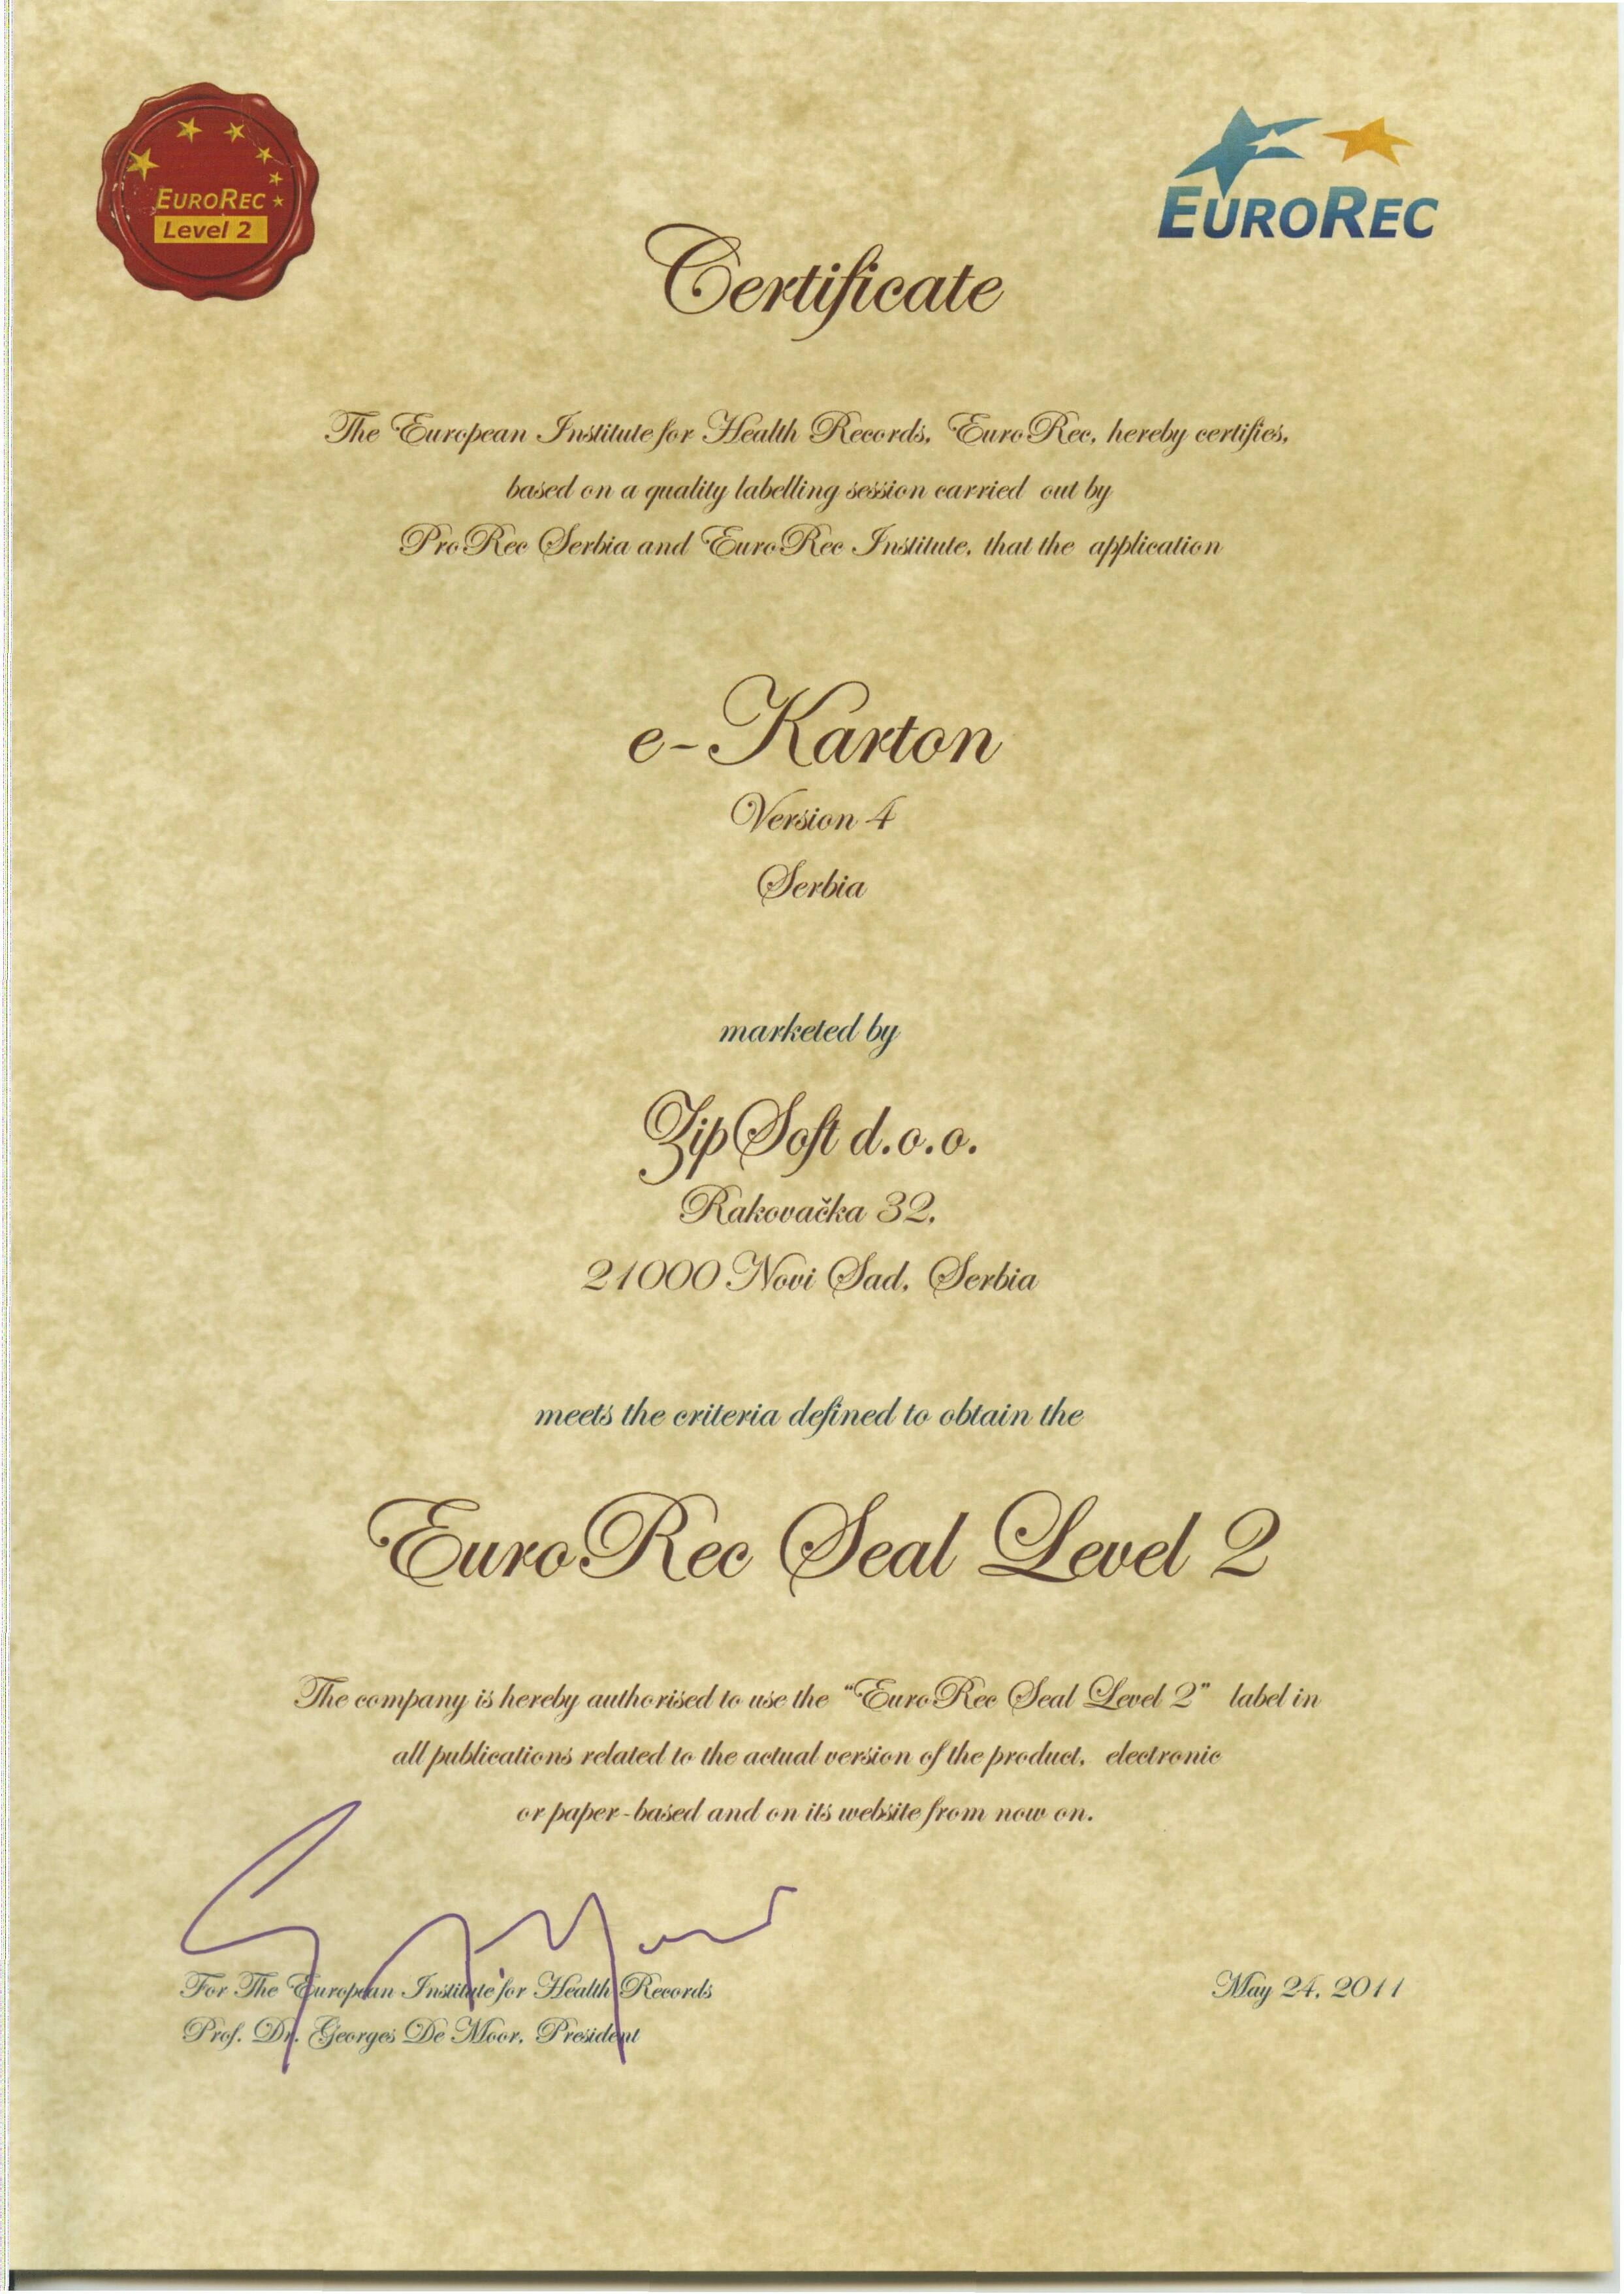 EUROREC
Level 2
EUROREC
Certificate
The European Institute for Health Records, EuroRec, hereby certifies,
based on a quality labelling session carried out by
ProRec Serbia and EuroRec Institute, that the application
e-Karton
Version 4
Serbia
marketed by
ZipSoft d.o.o.
Rakovačka 32,
21000 Novi Sad, Serbia
meets the criteria defined to obtain the
EuroRec Seal Level 2
The company is hereby authorised to use the “EuroRec Seal Level 2” label in
all publications related to the actual version of the product, electronic
or paper-based and on its website from now on.
For The European Institute for Health Records
May 24, 2011
Prof. Dr. Georges De Moor, President